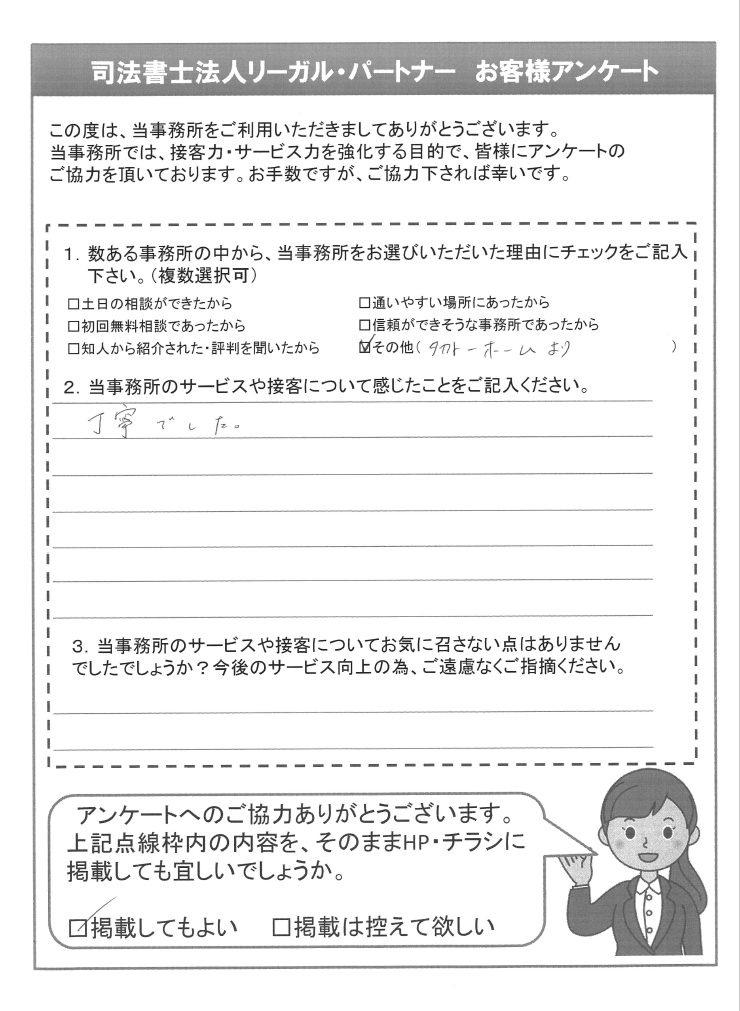 司法書士法人リーガル・パートナー　お客様アンケート
この度は、当事務所をご利用いただきましてありがとうございます。
当事務所では、接客力・サービス力を強化する目的で、皆様にアンケートの
ご協力を頂いております。お手数ですが、ご協力下されば幸いです。
１．数ある事務所の中から、当事務所をお選びいただいた理由にチェックをご記入
下さい。（複数選択可）
□土日の相談ができたから　□通いやすい場所にあったから
□初回無料相談であったから　□信頼ができそうな事務所であったから
□知人から紹介された・評判を聞いたから　☑その他（ タカトーホーム より ）
２．当事務所のサービスや接客について感じたことをご記入ください。
丁寧でした。
３．当事務所のサービスや接客についてお気に召さない点はありません
でしたでしょうか？今後のサービス向上の為、ご遠慮なくご指摘ください。
アンケートへのご協力ありがとうございます。
上記点線枠内の内容を、そのままHP・チラシに
掲載しても宜しいでしょうか。
☑掲載してもよい　□掲載は控えて欲しい